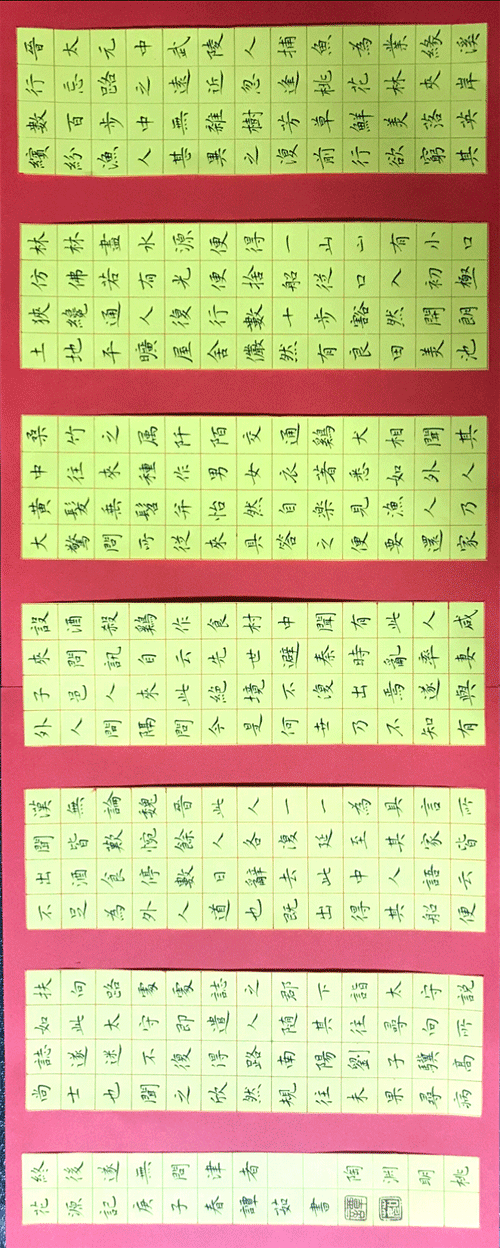 晉太元中武陵人捕魚為業緣溪
行忘路之遠近忽逢桃花林夾岸
數百步中無雜樹芳草鮮美落英
繽紛漁人甚異之復前行欲窮其
林林盡水源便得一山山有小口
仿佛若有光便捨船從口入初極
狹纔通人復行數十步豁然開朗
土地平曠屋舍儼然有良田美池
桑竹之属阡陌交通鷄犬相聞其
中往來種作男女衣著悉如外人
黃髮無髫并怡然自樂見漁人乃
大驚問所從來具答之便要還家
設酒殺鷄作食村中聞有此人咸
來問訊自云先世避秦時亂率妻
子邑人來此絕境不復出焉遂與
外人間隔問今是何世乃不知有
漢無論魏晉此人一一為具言所
聞皆歎惋餘人各復延至其家皆
出酒食停數日辭去此中人語云
不足為外人道也既出得其船便
扶向路處處誌之郡下詣太守說
如此太守即遣人隨其往尋向所
誌遂迷不復得路南陽劉子驥高
尚士也聞之欣然規往未果尋病
終後遂無問津者 陶淵明桃
花源記庚子春譚茹書